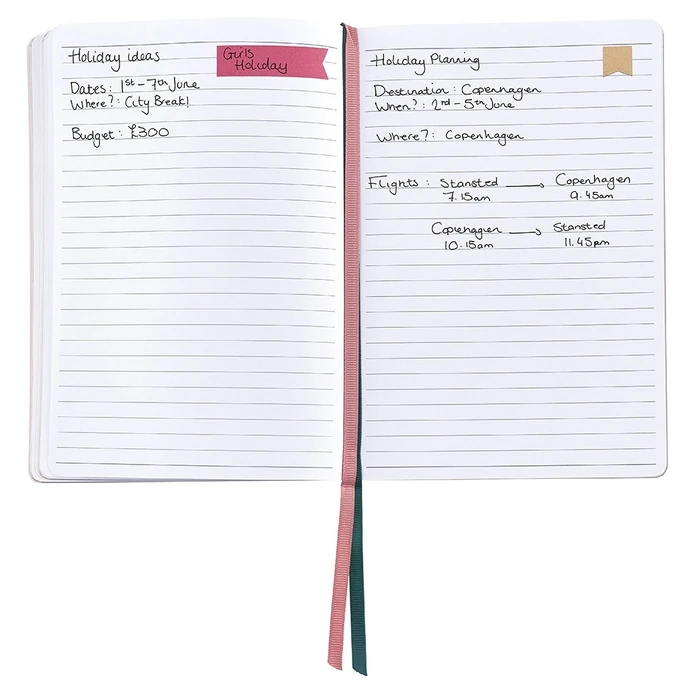 Holiday ideas
Girls
Holiday
Dates: 1st - 7th June
Where?: City Break!
Budget: £300
Holiday Planning
Destination: Copenhagen
When?: 2nd - 5th June
Where?: Copenhagen
Flights: Stansted → Copenhagen
7.15am 9.45am
Copenhagen → Stansted
10.15am 11.45pm